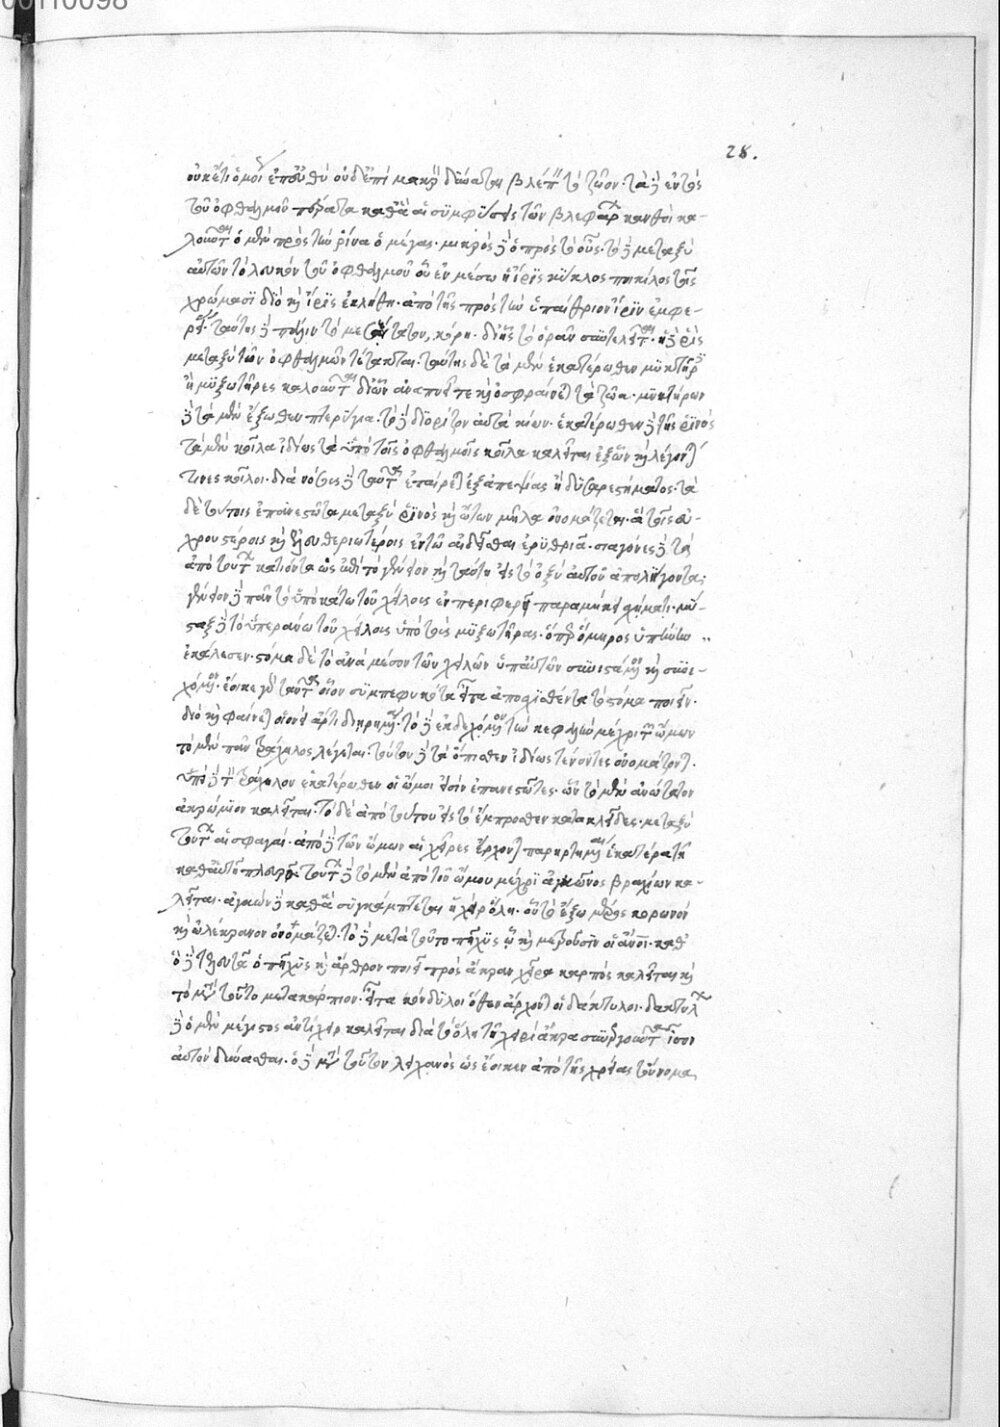 28.
οὐκέτι ὁμοί ἐπ' εὐθὺ οὐδ' ἐπὶ μακρὰ δύναται βλέπειν τὸ ζῶον. τὰ δὲ ἐντὸς
τοῦ ὀφθαλμοῦ πέρατα καθ' ἃ αἱ συμφύσεις τῶν βλεφάρων κανθοὶ κα-
λοῦνται ὁ μὲν πρὸς τὴν ῥίνα ὁ μέγας. μικρὸς δὲ ὁ πρὸς τὸ οὖς. τὸ δὲ μεταξὺ
αὐτῶν τὸ λευκὸν τοῦ ὀφθαλμοῦ οὗ ἐν μέσω ἡ ἶρις κύκλος ποικίλος τοῖς
χρώμασι διὸ καὶ ἶρις ἐκλήθη. ἀπὸ τῆς πρὸς τὴν ὑπαίθριον ἶριν ἐμφε-
ρείας. ταύτης δὲ πάλιν τὸ μεσαίτατον, κόρη. δι' ἧς τὸ ὁρᾶν συντελεῖται. ἡ δὲ ῥὶς
μεταξὺ τῶν ὀφθαλμῶν τέτακται. ταύτης δὲ τὰ μὲν ἑκατέρωθεν μυκτῆρες
ἢ μυξωτῆρες καλοῦνται δι' ὧν ἀναπνεῖ τε καὶ ὀσφραίνεται τὰ ζῶα. μυκτήρων
δὲ τὰ μὲν ἔξωθεν πτερύγια. τὸ δὲ διορίζον αὐτὰ κίων. ἑκατέρωθεν δὲ τῆς ῥινὸς
τὰ μὲν κοῖλα ἰδίως τὰ ὑπὸ τοῖς ὀφθαλμοῖς κοῖλα καλεῖται ἐξ ὧν καὶ λέγονται
τινες κοῖλοι. διὰ νόσεις δὲ ταῦτα ἐπαίρεται ἐξ ἀπεψίας ἢ δυσαρεστήματος. τὰ
δὲ τούτοις ἐπανεστῶτα μεταξὺ ῥινὸς καὶ ὤτων μῆλα ὀνομάζεται. ἃ τοῖς εὐ-
χρουστέροις καὶ ἐλευθεριωτέροις ἐν τῶ αἰδεῖσθαι ἐρυθριᾶ. σιαγόνες δὲ τὰ
ἀπὸ τούτων κατιόντα ὡς ἐπὶ τὸ γένειον καὶ ταύτη εἰς τὸ ὀξὺ αὐτοῦ ἀπολήγοντα.
γένειον δὲ πᾶν τὸ ὑποκάτω τοῦ χείλους ἐν περιφερεῖ παραμήκει σχήματι. μύ-
σταξ δὲ τὸ ὑπεράνω τοῦ χείλους ὑπὸ τοὺς μυξωτῆρας. ὅπερ ὅμηρος ὑπήνην
ἐκάλεσεν. στόμα δὲ τὸ ἀνὰ μέσον τῶν χειλῶν ὑπ' αὐτῶν συνιστάμενον καὶ συνε-
χόμενον. ἔοικε γὰρ ταῦτα οἷον συμπεφυκότα εἶτα ἀποσχισθέντα τὸ στόμα ποιεῖν.
διὸ καὶ φαίνεται οἱονεὶ ἄρτι διῃρημένα. τὸ δὲ ἐκδεχόμενον τὴν κεφαλὴν μέχρι τῶν ὤμων
τὸ μὲν πᾶν τράχηλος λέγεται. τούτου δὲ τὰ ὄπισθεν ἰδίως τένοντες ὀνομάζονται.
ὑπὸ δὲ τὸν τράχηλον ἑκατέρωθεν οἱ ὦμοι εἰσὶν ἐπανεστῶτες. ὧν τὸ μὲν ἀνώτατον
ἀκρώμιον καλεῖται. τὸ δὲ ἀπὸ τούτου εἰς τὸ ἔμπροσθεν κατακλεῖδες. μεταξὺ
τούτων αἱ σφαγαί. ἀπὸ δὲ τῶν ὤμων αἱ χεῖρες ἔρχονται παρηρτημέναι ἑκατέρα τῆ
καθ' αὑτὴν πλευρᾶ. τούτων δὲ τὸ μὲν ἀπὸ τοῦ ὤμου μέχρι ἀγκῶνος βραχίων κα-
λεῖται. ἀγκὼν δὲ καθ' ἃ συγκάμπτεται ἡ χεὶρ ὅλη. οὗ τὸ ἔξω μέρος κορωνὸν
καὶ ὠλέκρανον ὀνομάζεται. τὸ δὲ μετὰ τοῦτο πῆχυς ᾧ καὶ μετροῦσιν οἱ ἄνοι. καθ'
ὃ δὲ τελευτᾶ ὁ πῆχυς καὶ ἄρθρον ποιεῖ πρὸς ἄκραν χεῖρα καρπὸς καλεῖται καὶ
τὸ μετὰ τοῦτο μετακάρπιον. εἶτα κόνδυλοι ὅθεν ἄρχονται οἱ δάκτυλοι. δακτύλων
δὲ ὁ μὲν μέγιστος ἀντίχειρ καλεῖται διὰ τὸ ὅλη τῆ χειρὶ ἄκρα συνεργοῦντα ἴσον
αὐτὸν δύνασθαι. ὁ δὲ μετὰ τοῦτον λιχανὸς ὡς ἔοικεν ἀπὸ τῆς χρείας τοὔνομα